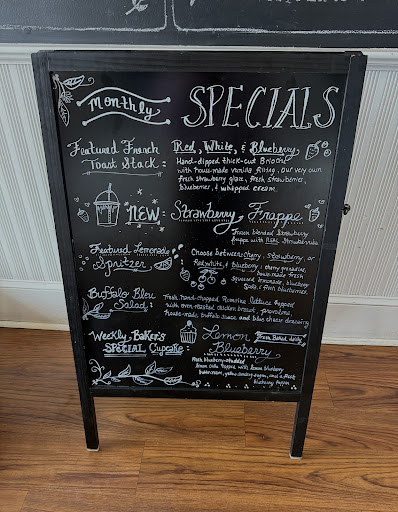 Monthly SPECIALS
Featured French Toast Stack:
Red, White, & Blueberry
Hand-dipped thick-cut Brioche
with house-made vanilla filling, our very own
fresh strawberry glaze, fresh strawberries,
blueberries, & whipped cream.
NEW: Strawberry Frappe
Frozen blended Strawberry
frappe with REAL strawberries
Featured Lemonade Spritzer:
Choose between: cherry, strawberry, or
Red, white, & Blueberry:
house-made fresh
squeezed lemonade, blueberry
Buffalo Bleu Salad:
Fresh, hand-chopped Romaine lettuce topped
with oven-roasted chicken breast,
house-made buffalo sauce and bleu cheese dressing
Weekly Baker's SPECIAL Cupcake:
Lemon Blueberry
Fresh Baked daily
Fresh blueberry-studded
lemon cake topped with lemon blueberry
buttercream, and a fresh
blueberry topper